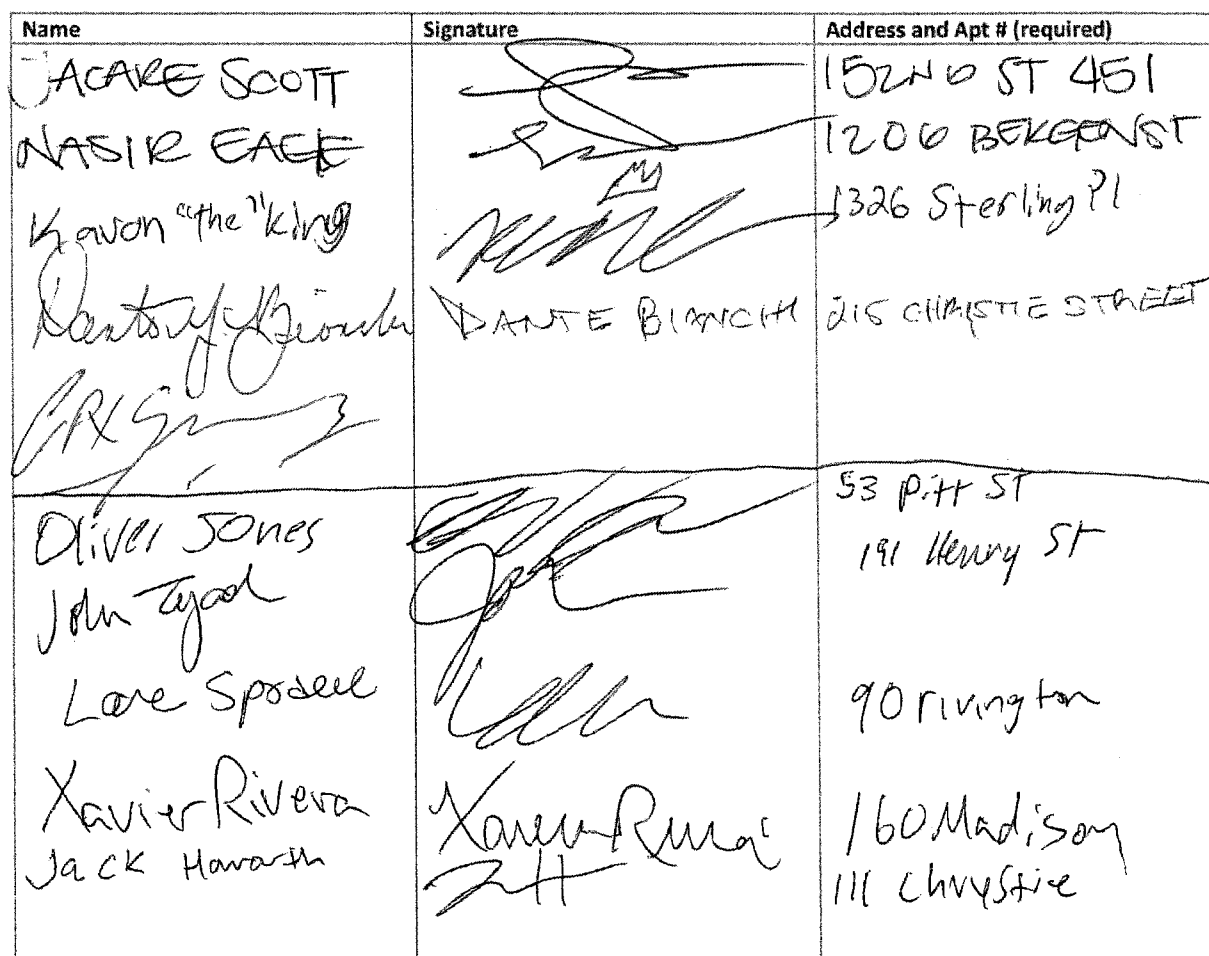 Name Signature Address and Apt # (required)
JACARE SCOTT 152ND ST 451
NASIR 1206 BERGEN ST
Kavon "the" king 1326 Sterling Pl
DANTE BIANCHI 215 CHRISTIE STREET
53 Pitt ST
Oliver Jones
191 Henry ST
John
90 rivington
Xavier Rivera Xavier Rivera 160 Madison
Jack Howarth 111 Chrystie